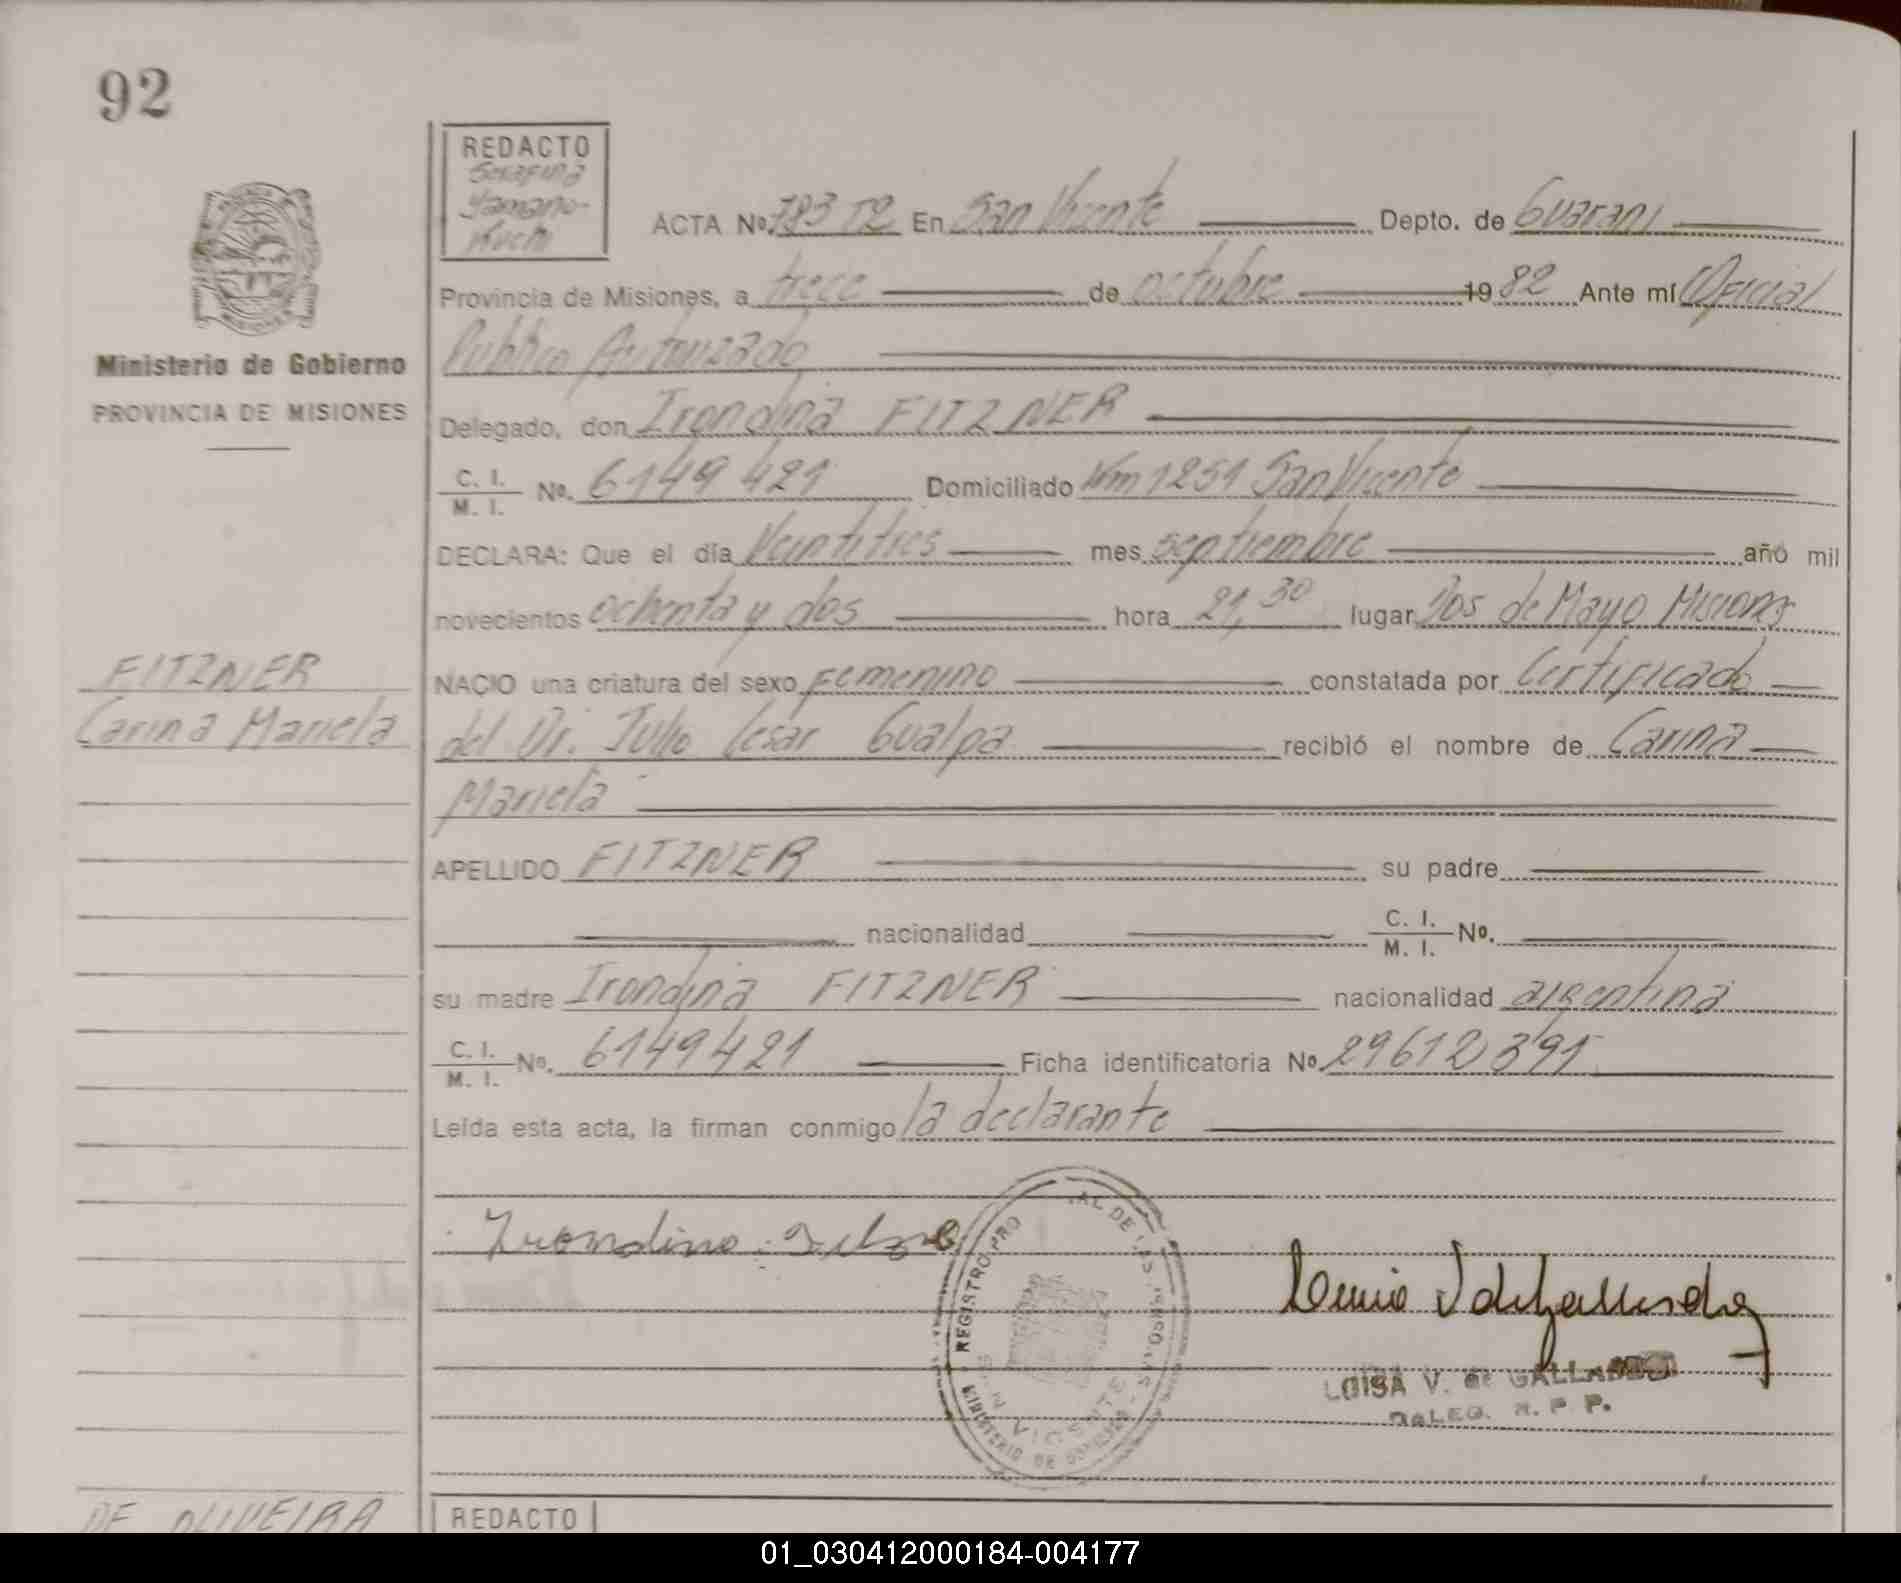 92
REDACTO
Serafina
Yamano-
Kuchi
ACTA Nº 783 T2 En San Vicente Depto. de Guaraní
Provincia de Misiones, a trece de octubre 1982 Ante mí Oficial
Publico Autorizado
Ministerio de Gobierno
PROVINCIA DE MISIONES
Delegado, don Irondina FITZNER
C. I.
M. I. Nº. 6149421 Domiciliado Km 1251 San Vicente
DECLARA: Que el día Veintitres mes septiembre año mil
novecientos ochenta y dos hora 21,30 lugar Dos de Mayo Misiones
FITZNER
Carina Mariela
NACIO una criatura del sexo Femenino constatada por Certificado
del Dr. Julio Cesar Gualpa recibió el nombre de Carina
Mariela
APELLIDO FITZNER su padre
nacionalidad C. I.
M. I. Nº.
su madre Irondina FITZNER nacionalidad argentina
C. I.
M. I. Nº. 6149421 Ficha identificatoria Nº 29612391
Leída esta acta, la firman conmigo la declarante
Irondina
REGISTRO PRO AL DE LAS PERSONAS
MINISTERIO DE GOBIERNO
LUISA V. de GALLARDO
DELEG. R. P. P.
DE OLIVEIRA
REDACTO
01_030412000184-004177